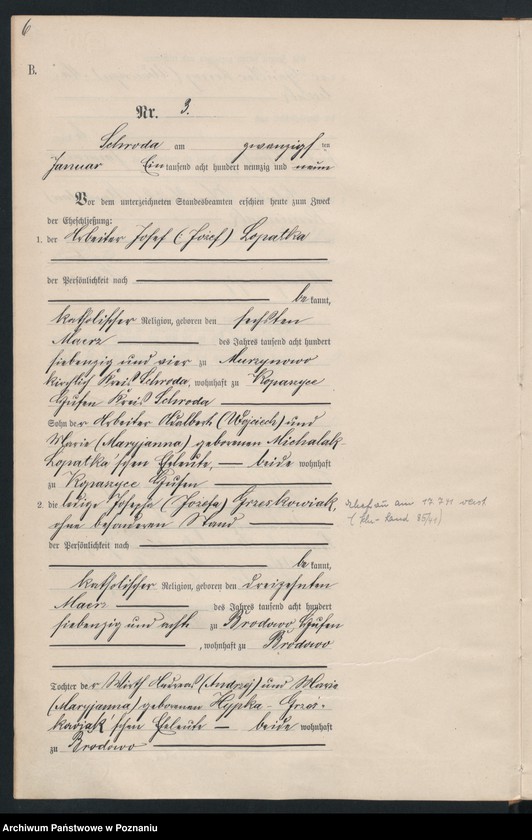 6
B.
Nr. 3.
Schroda am zwanzigsten
Januar Ein tausend acht hundert neunzig und neun
Vor dem unterzeichneten Standesbeamten erschien heute zum Zweck
der Eheschließung:
1. der Arbeiter Josef (Jozef) Lopatka
der Persönlichkeit nach
be kannt,
katholischer Religion, geboren den sechsten
Maerz des Jahres tausend acht hundert
siebenzig und vier zu Murzynowo
kirchlich Kreis Schroda, wohnhaft zu Kopaszyce
Hufen Kreis Schroda
Sohn der Arbeiter Adalbert (Wojciech) und
Marie (Maryjanna) geborenen Michalak-
Lopatka'schen Eheleute, — beide wohnhaft
zu Kopaszyce Hufen
2. die ledige Josepha (Jozefa) Grzeskowiak,
ohne besonderen Stand
Ehefrau am 17.7.41 verst.
der Persönlichkeit nach
be kannt,
katholischer Religion, geboren den dreizehnten
Maerz des Jahres tausend acht hundert
siebenzig und acht zu Brodowo Hufen
, wohnhaft zu Brodowo
Tochter der Wirth Andreas (Andrzej) und Marie
(Maryjanna) geborenen Hypka - Grzes-
kowiak'schen Eheleute — beide wohnhaft
zu Brodowo
Archiwum Państwowe w Poznaniu